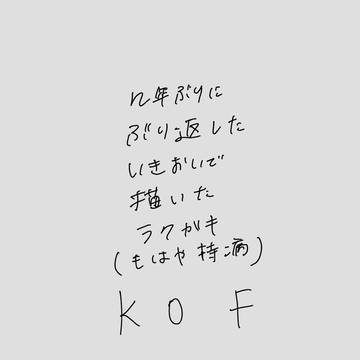 n年ぶりに
ぶり返した
いきおいで
描いた
ラクガキ
(もはや持病)
KOF